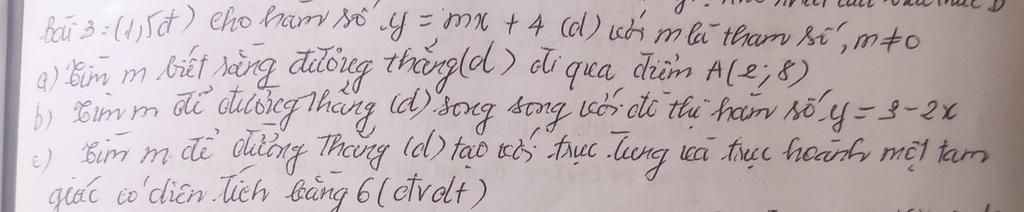 bài 3: (1,5đ) cho hàm số y = mx + 4 (d) với m là tham số, m≠0
a) tìm m biết rằng đường thẳng (d) đi qua điểm A(2;8)
b) tìm m để đường thẳng (d) song song với đồ thị hàm số y = 3-2x
c) tìm m để đường thẳng (d) tạo với trục tung và trục hoành một tam
giác có diện tích bằng 6 (đvdt)